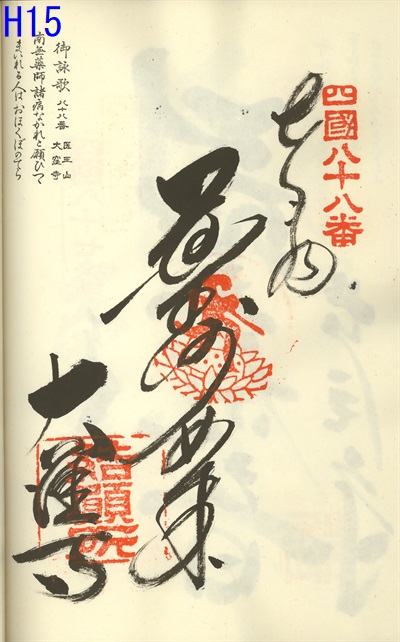 H15
四國八十八番
奉納
薬師如来
大窪寺
結願所
御詠歌 八十八番 医王山 大窪寺
南無薬師諸病なかれと願ひつゝ
まいれる人はおほくぼのてら